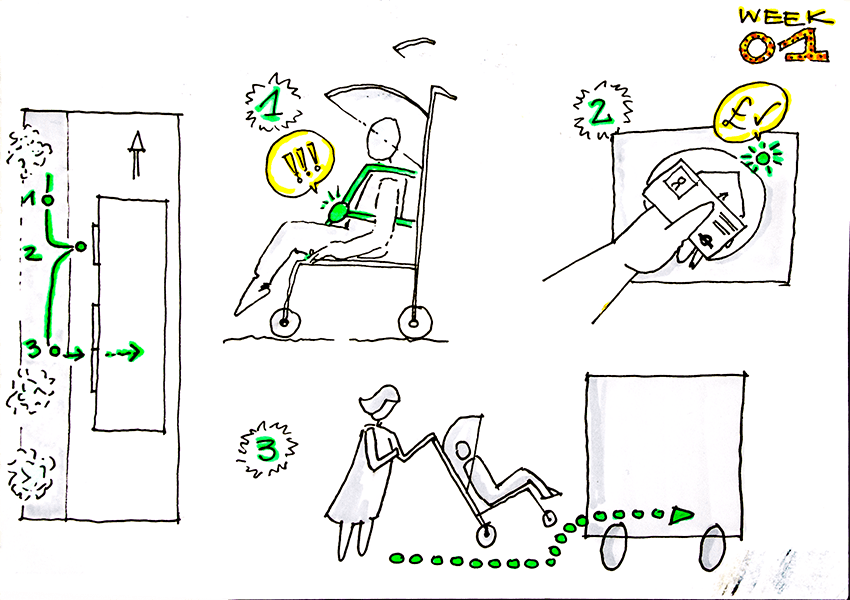 WEEK
01
1
!!!
2
£✓
1
2
3
3